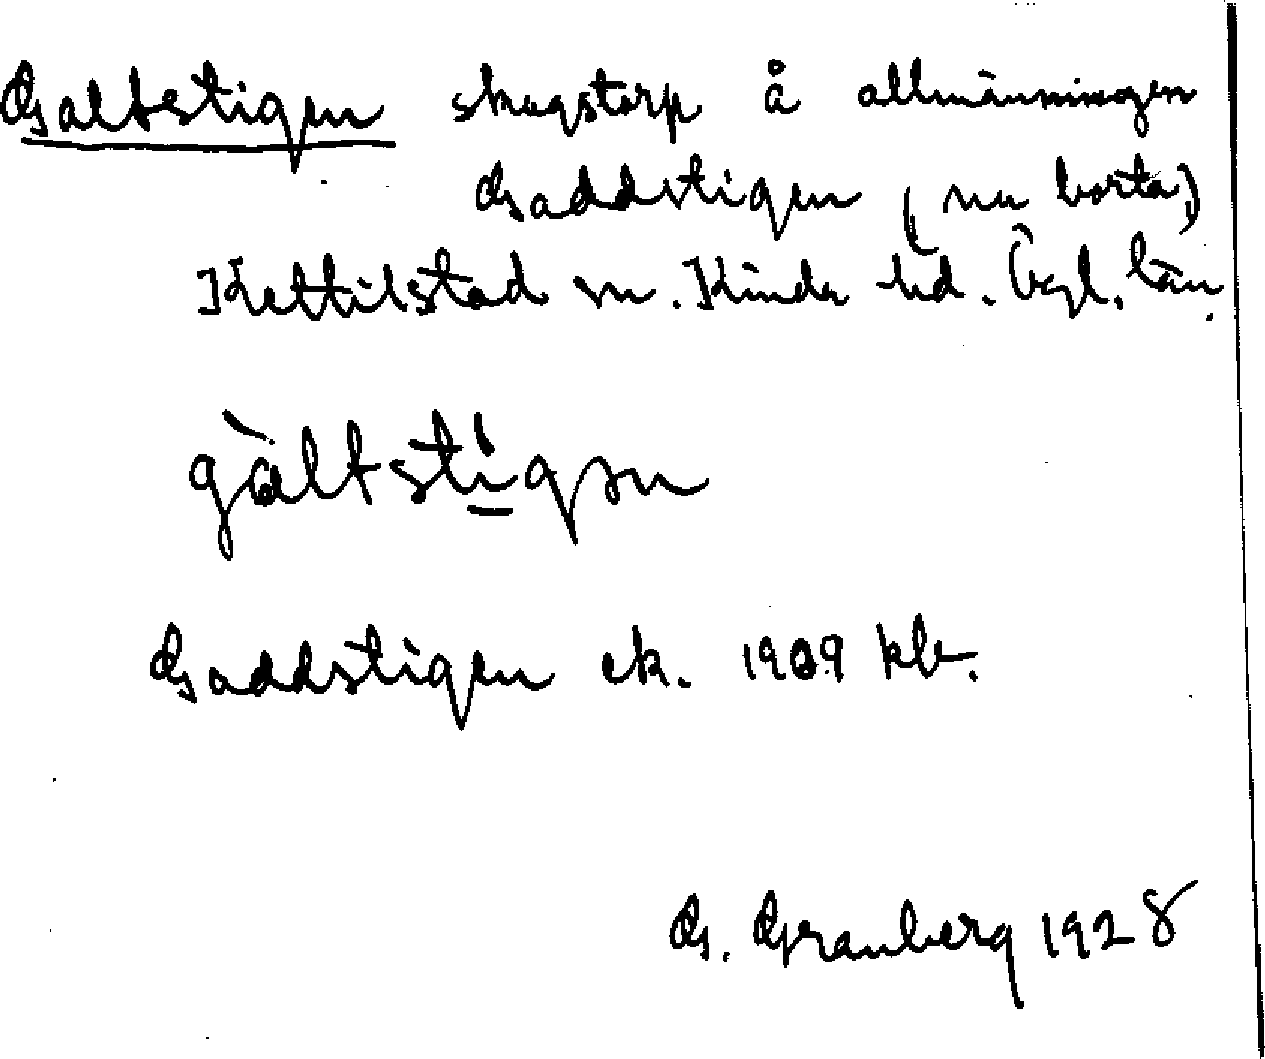 Galtstigen skogstorp å allmänningen
Gaddstigen (nu borta)
Kettilstad sn. Kinda hd. Ögl. län.
gàltstigən
Gaddstigen ek. 1909 kb.
G. Granberg 1928